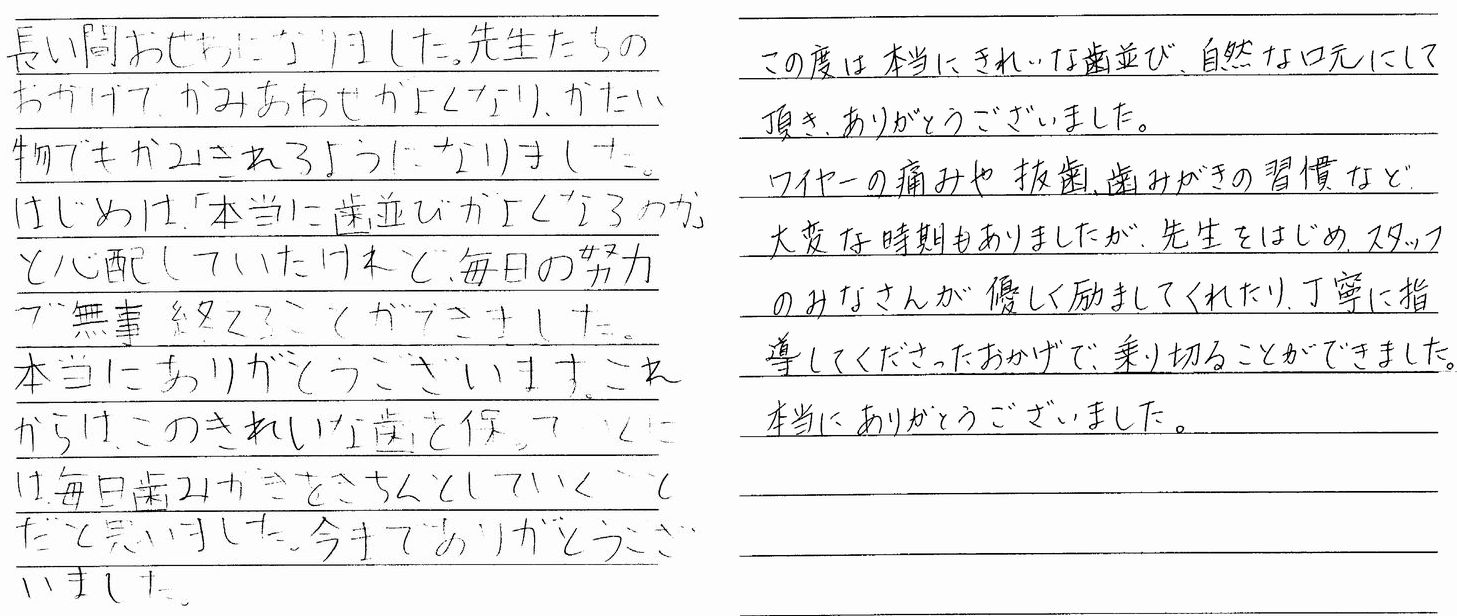 長い間おせわになりました。先生たちの
おかげで、かみあわせがよくなり、かたい
物でもかみきれるようになりました。
はじめは、「本当に歯並びがよくなるのか」
と心配していたけれど、毎日の努力
で無事終えることができました。
本当にありがとうございます。これ
からは、このきれいな歯を保っていくに
は毎日歯みがきをきちんとしていくこと
だと思いました。今までありがとうござ
いました。
この度は本当にきれいな歯並び、自然な口元にして
頂き、ありがとうございました。
ワイヤーの痛みや抜歯、歯みがきの習慣など
大変な時期もありましたが、先生をはじめ、スタッフ
のみなさんが優しく励ましてくれたり、丁寧に指
導してくださったおかげで、乗り切ることができました。
本当にありがとうございました。